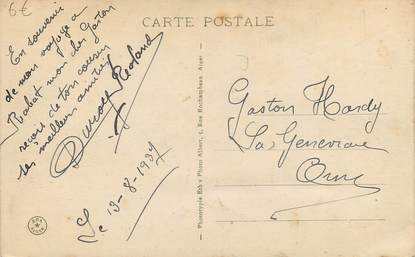 6€
CARTE POSTALE
En souvenir
de mon voyage a
Rabat mon cher Gaston
recoit de ton cousin
ses meilleurs amitiés
Roland
Le 13-8-1937
Phototypie Réb's Photo Albert, 1, Rue Rochambeau Alger
Gaston Hardy
La Genevraie
Orne